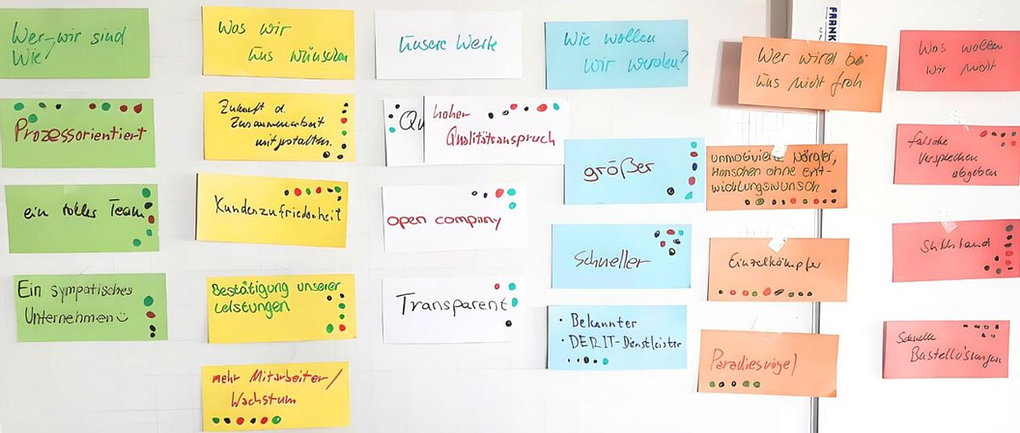 Wer wir sind
Wie/
Prozessorientiert
ein tolles Team
Ein sympatisches
Unternehmen
Was wir
uns wünschen
Zukunft d.
Zusammenarbeit
mitgestalten.
Kundenzufriedenheit
Bestätigung unserer
Leistungen
mehr Mitarbeiter/
Wachstum
Unsere Werte
Qu
hoher
Qualitätsanspruch
open company
Transparent
Wie wollen
wir werden?
größer
Schneller
• Bekannter
• DER IT-Dienstleister
FRANK
Wer wird bei
uns nicht froh
unmotivierte Nörgler,
Menschen ohne Ent-
wicklungswunsch
Einzelkämpfer
Paradiesvögel
Was wollen
wir nicht
falsche
Versprechen
abgeben
Stillstand
Schnelle
Bastellösungen